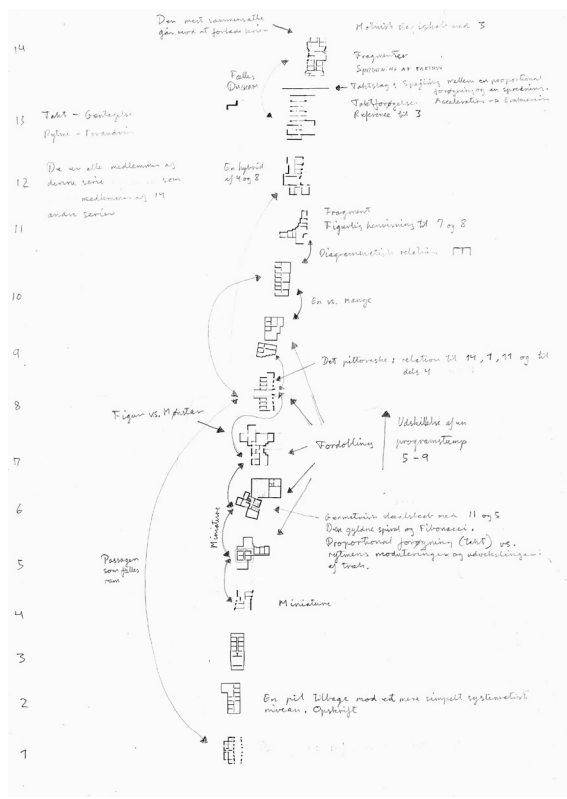 Den mest sammensatte
går mod at forlade serien
Motivisk slægtskab med 3
14
Fragmenter
Spejlning
Fælles
Diagram
Taktslag: Spejling mellem en proportional
forøgning og en spredning.
Taktforøgelse. Acceleration
Reference til 3
13
Takt – Gentagelse
Rytme –
De er alle medlemmer af
denne serie som
medlemmer af 14
andre serier
12
En hybrid
af 4 og 8
Fragment
11
Figurlig henvisning til 7 og 8
Diagrammatisk relation
10
En vs. mange
9
Det pittoreske: relation til 14, 1, 11 og til
dels 4
8
Figur vs. Mønster
Fordobling
Udskillelse af en
programstemp
5-9
7
6
Miniature
Geometrisk slægtskab med 11 og 5
Den gyldne spiral og Fibonacci.
Proportional forøgning (takt) vs.
rytmens moduleringer og udvekslinger
af træk.
5
Passagen
som fælles
rum
4
Miniature
3
2
En pil tilbage mod et mere simpelt systematisk
niveau. Opskrift
1